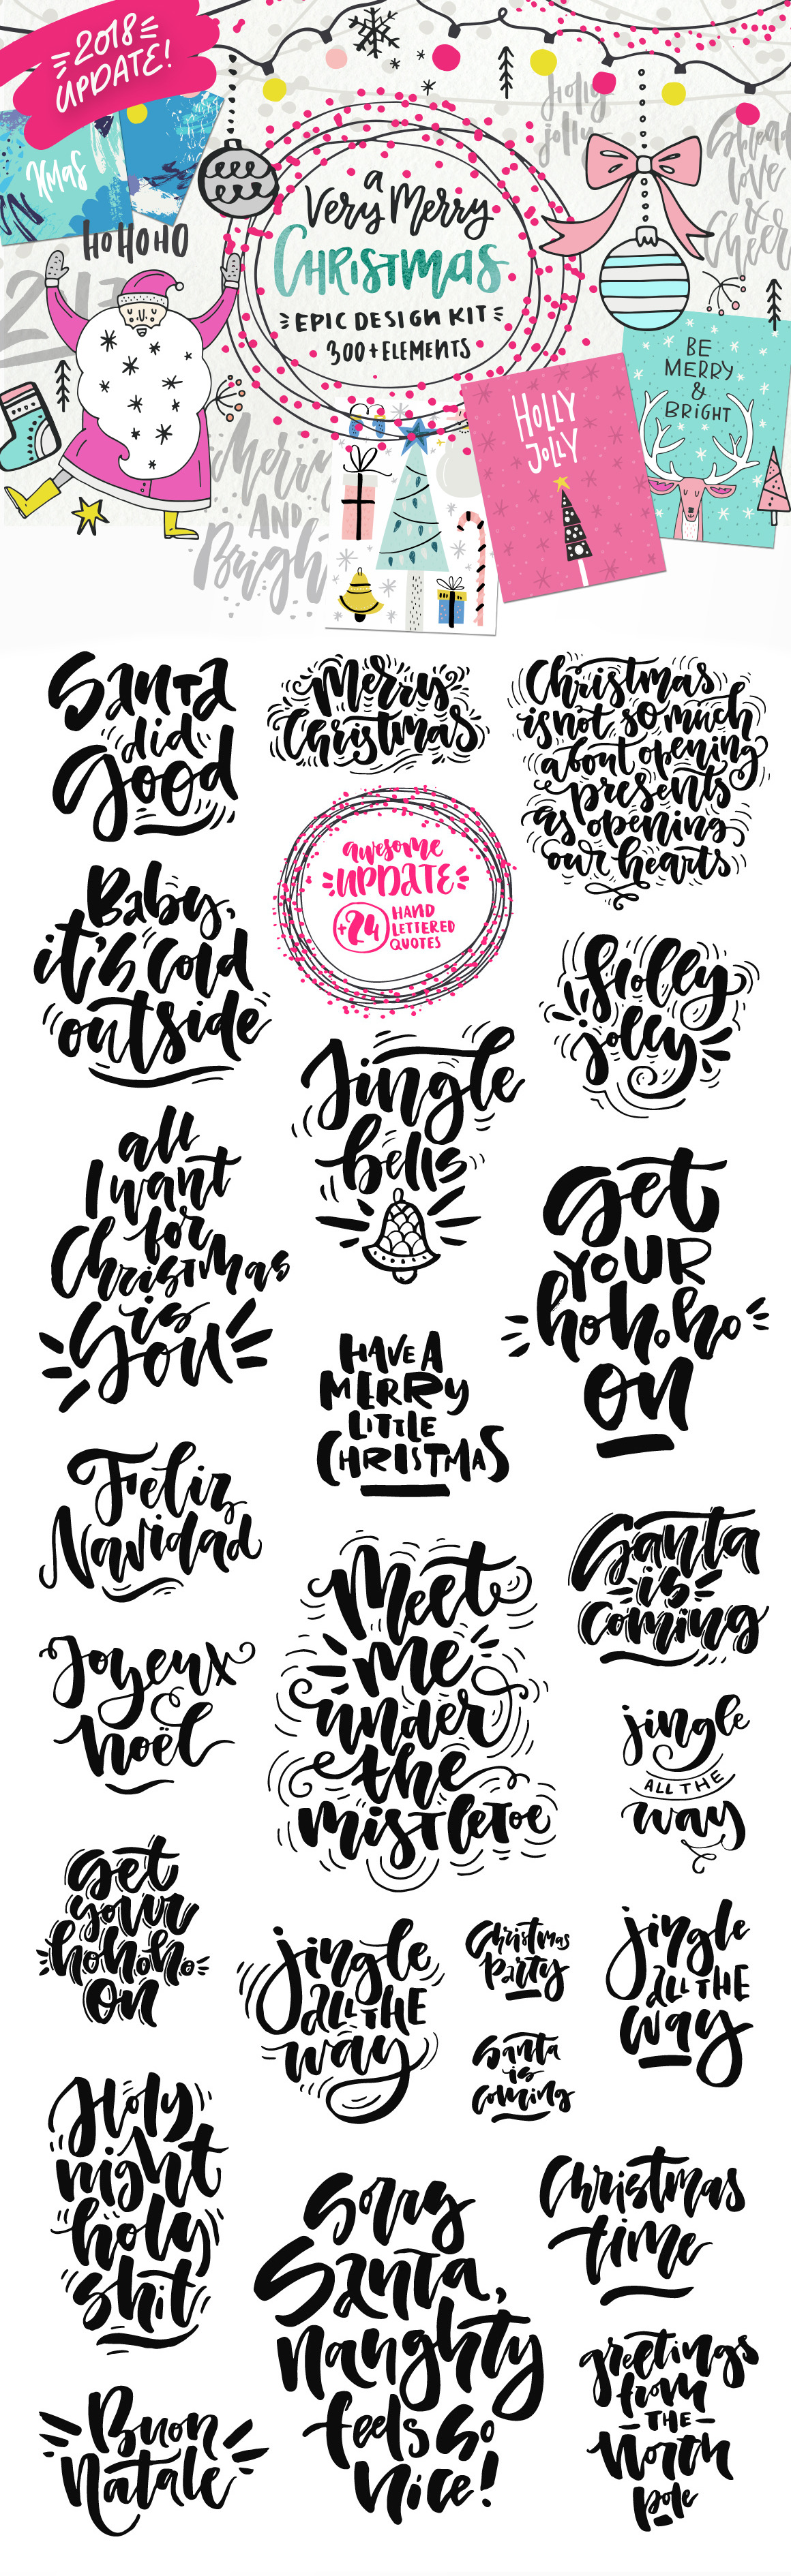 2018
UPDATE!
Xmas
HOHOHO
holly
jolly
Spread
love
&
Cheer
a
Very Merry
CHRISTMAS
EPIC DESIGN KIT
300+ELEMENTS
BE
MERRY
&
BRIGHT
HOLLY
JOLLY
Merry
AND
Bright
Santa
did
good
Merry
Christmas
Christmas
is not so much
about opening
presents
as opening
our hearts
awesome
UPDATE
+24
HAND
LETTERED
QUOTES
Baby,
it's cold
outside
Holly
jolly
Jingle
bells
all
I want
for
Christmas
is
you
get
YOUR
hohoho
on
HAVE A
MERRY
LITTLE
CHRISTMAS
Feliz
Navidad
Santa
is
coming
Meet
me
under
the
mistletoe
Joyeux
noël
jingle
ALL THE
way
get
your
hohoho
on
jingle
ALL THE
way
Christmas
Party
jingle
ALL THE
way
Santa
is
coming
Holy
night
holy
shit
Christmas
time
Sorry
Santa,
naughty
feels so
nice!
greetings
from
THE
North
pole
Buon
Natale